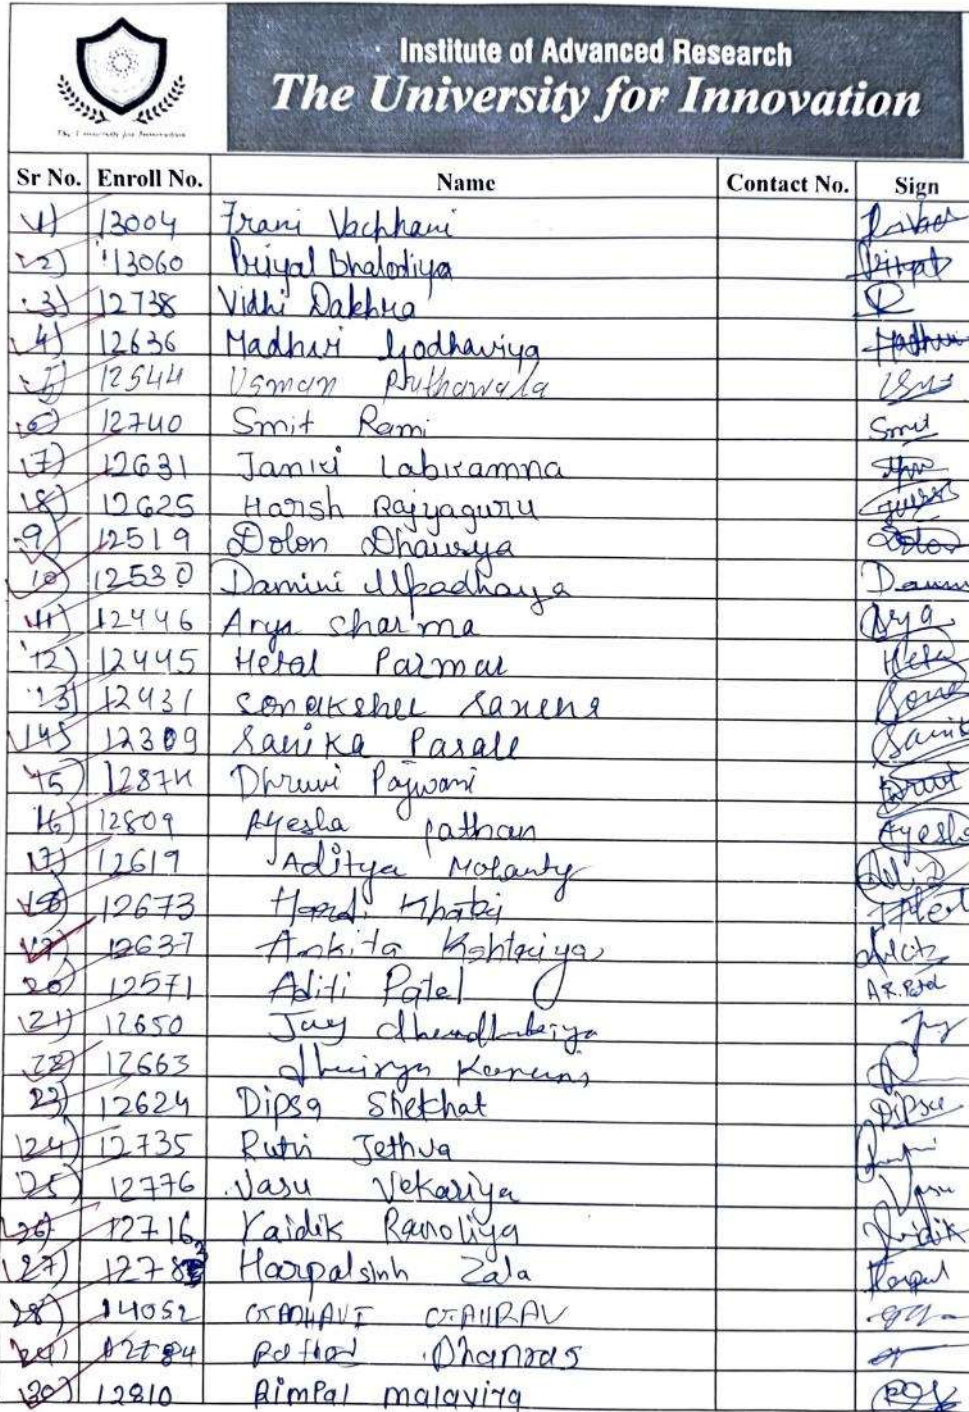 The University for Innovation
Institute of Advanced Research
The University for Innovation
Sr No. Enroll No. Name Contact No. Sign
1) 13004 Frani Vachhani
2) 13060 Priyal Bhalodiya
3) 12738 Vidhi Dakhra
4) 12636 Madhuri Godhaviya Madhuri
5) 12544 Usman
6) 12740 Smit Rami Smit
7) 12631 Janki Labkamna
8) 12625 Harsh Rajyaguru
9) 12519 Dolon Dhaurya Dolon
10) 12530 Damini Upadhaya
11) 12446 Arya Sharma Arya
12) 12445 Hetal Parmar
13) 12431 Sonakshee Saxena
14) 12309 Sanika Pasale
15) 12874 Dhruvi Pajwani
16) 12809 Ayesha Pathan Ayesha
17) 12619 Aditya Mohanty
18) 12673 Khatri
19) 12637 Ankita Kshtriya
20) 12571 Aditi Patel A.R. Patel
21) 12650 Jay Jay
22) 12663
23) 12624 Dipsa Shekhat Dipsa
24) 12735 Rutvi Jethva
25) 12776 Vasu Vekariya Vasu
26) 12716 Vaidik Ramoliya Vaidik
27) Harpalsinh Zala Harpal
28) 14052 GADHAVI GAURAV
29) 12784 Dhanras
30) 12810 Rimpal malaviya